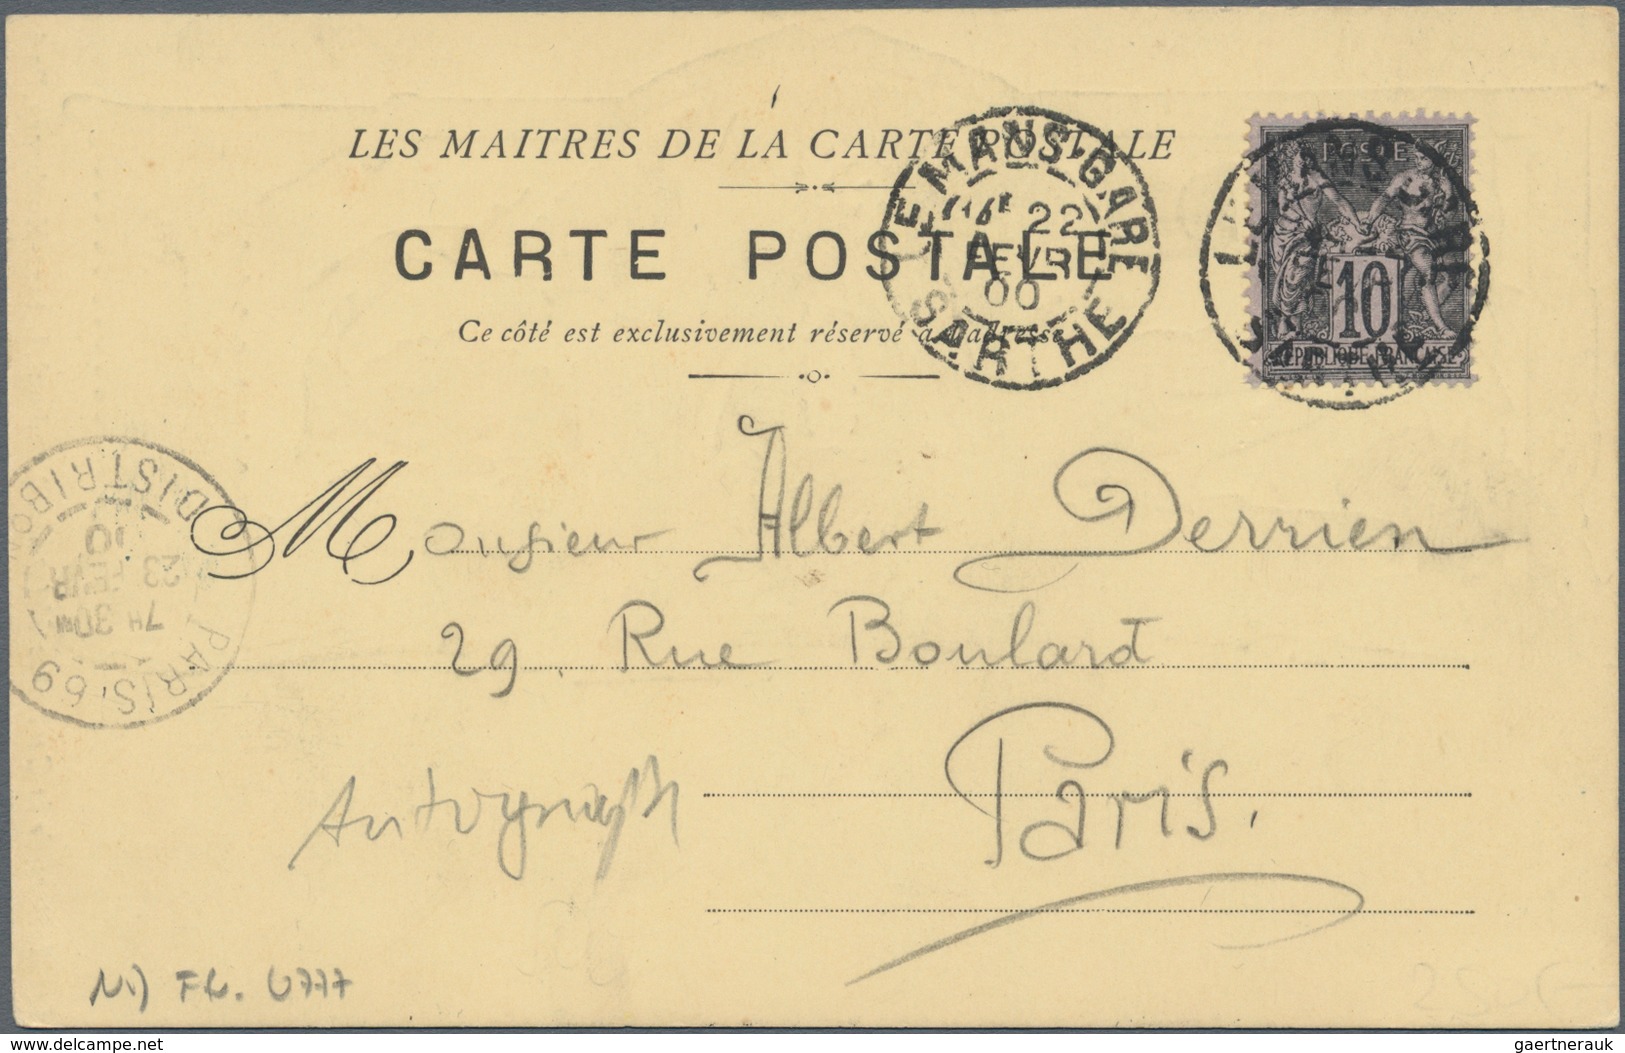 LES MAITRES DE LA CARTE POSTALE
CARTE POSTALE
Ce côté est exclusivement réservé à l'adresse
LE MANS-GARE
22
FEVR
00
SARTHE
LE MANS-GARE
SARTHE
POSTE
10
RÉPUBLIQUE FRANÇAISE
DISTRIB
7H 30M
23
FEVR
00
PARIS. 69
Monsieur Albert Derrien
29. Rue Boulard
Paris.
Autograph
gaertnerauk